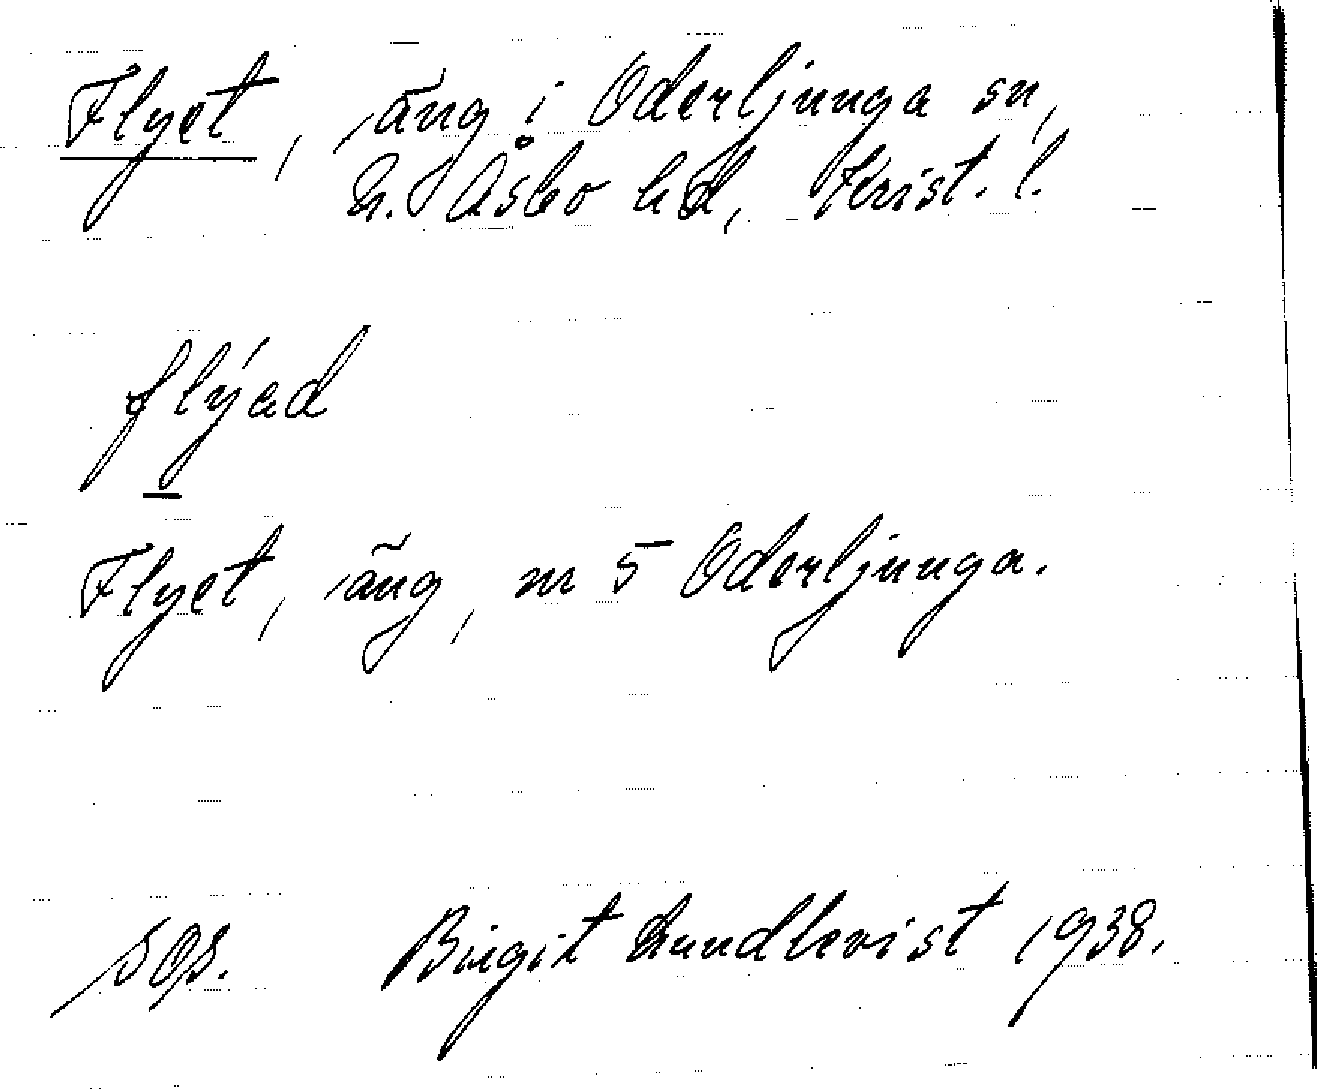 Flyet, äng i Oderljunga sn,
N. Åsbo hd, Krist. l.
flýad
Flyet, äng, nr 5 Oderljunga.
Birgit Lundkvist 1938.